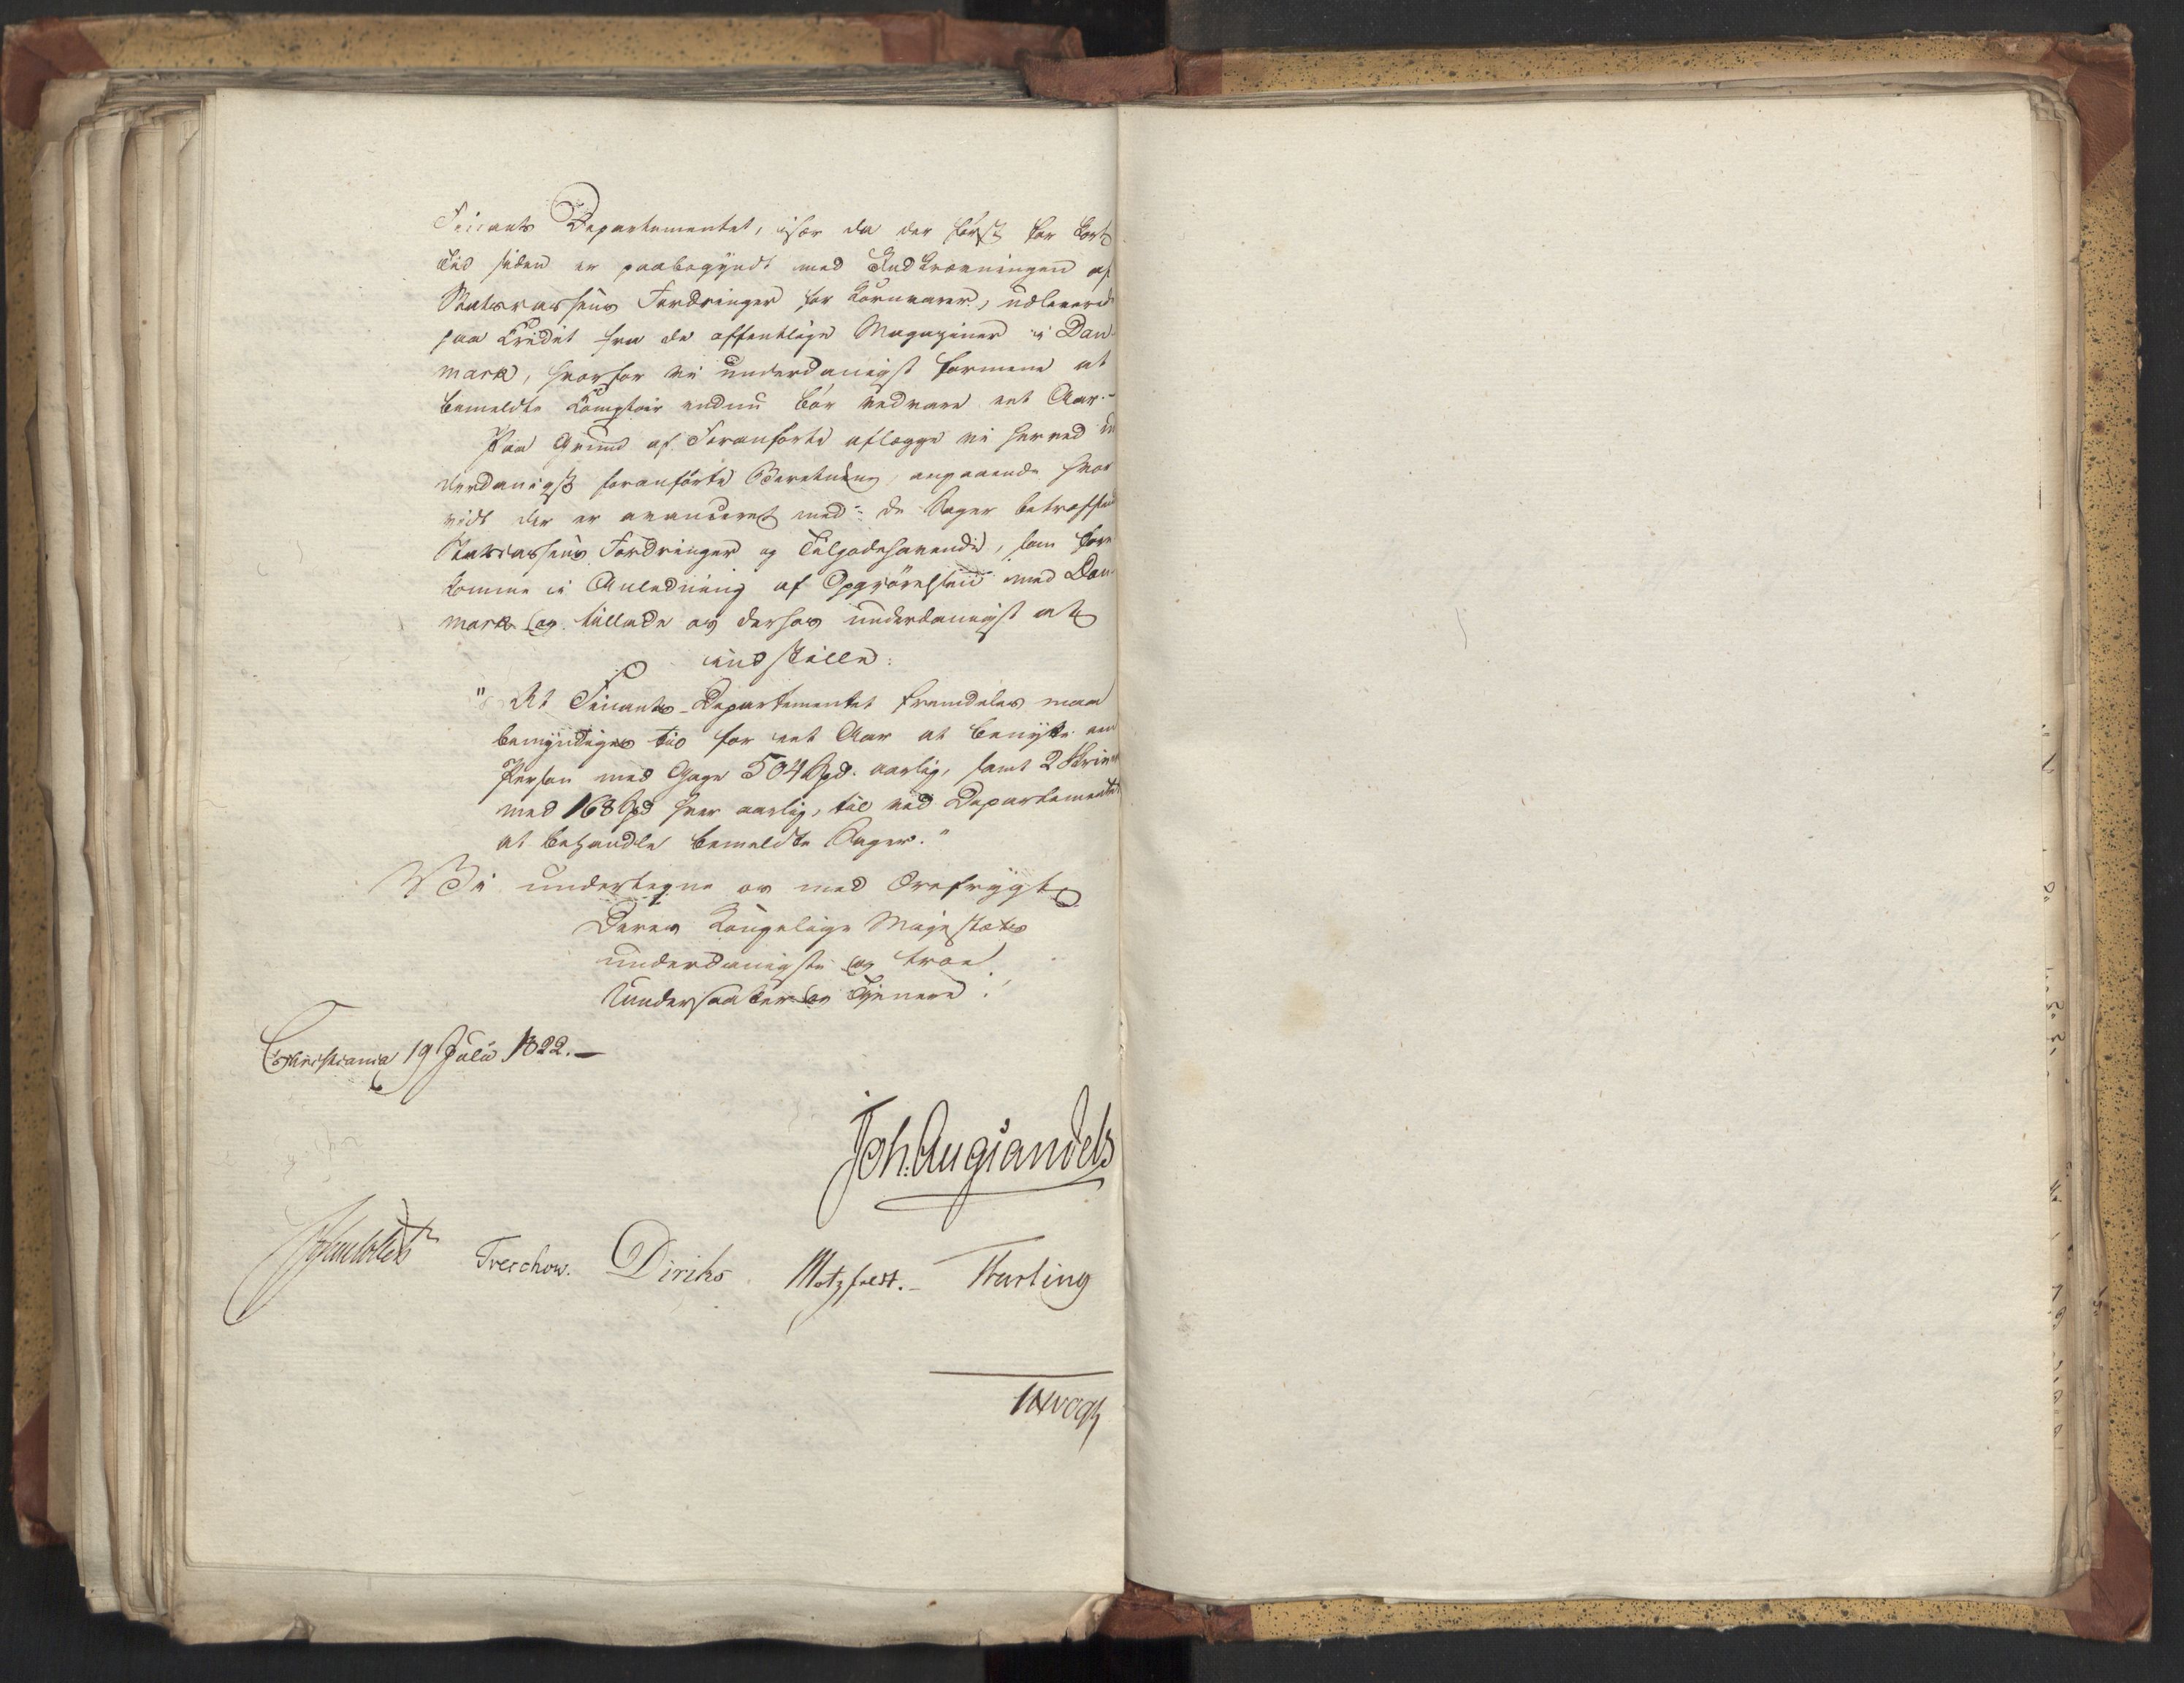 Finants Departementet, især da der først for kort
Tid siden er paabegyndt med Indkrævningen af
Statscassens Fordringer for Kornvarer, udleverede
paa Credit fra de offentlige Magaziner i Dan-
mark, hvorfor vi underdanigst formene at
bemeldte Comptoir endnu bör vedvare eet Aar.-
Paa Grund af Foranførte aflægge vi herved un
derdanigst foranförte Beretning, angaaende hvor
vidt der er avanceret med de Sager betræffende
Statscassens Fordringer og Tilgodehavende, som fore
komme i Anledning af Opgjörelsen med Dan-
mark og tillade os derhos underdanigst at
indstille:
"At Finants-Departementet fremdeles maa
bemyndiges til for eet Aar at benytte een
Person med Gage 504 Spd. aarlig, samt 2 Skrivere
med 168 Spd hver aarlig, til ved Departementet
at behandle bemeldte Sager."
Vi undertegne os med Ærefrygt
Deres Kongelige Majestæts
underdanigste og troe
Undersaatter og Tjenere.
Christiania 19 Juli 1822.-
Joh: Aug Sandels
Treschow. Diriks Motzfeldt.- Fasting
Vogt